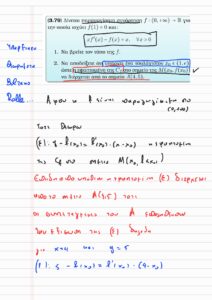 (3.79) Δίνεται παραγωγίσιμη συνάρτηση f : (0, +∞) → ℝ για
την οποία ισχύει f(1) = 0 και:
xf'(x) − f(x) = x, ∀x > 0
1. Να βρείτε τον τύπο της f.
2. Να αποδείξετε ότι υπάρχει
η εφαπτομένη της C_f στο σημείο της M(x₀, f(x₀))
να διέρχεται από το σημείο
Υπαρξιακό
Θεώρημα
Rolle...
Αφού η f είναι παραγωγίσιμη στο
(0,+∞)
Τότε
(ε): y − f(x₀) = f'(x₀)·(x − x₀) η εφαπτομένη
της Cf στο σημείο M(x₀, f(x₀))
Επειδή η εφαπτομένη (ε) διέρχεται
από το σημείο A(4,5) τότε
οι συντεταγμένες του A επαληθεύουν
την εξίσωση της (ε) δηλαδή
για x=4 και y = 5
(ε): 5 − f(x₀) = f'(x₀)·(4 − x₀)